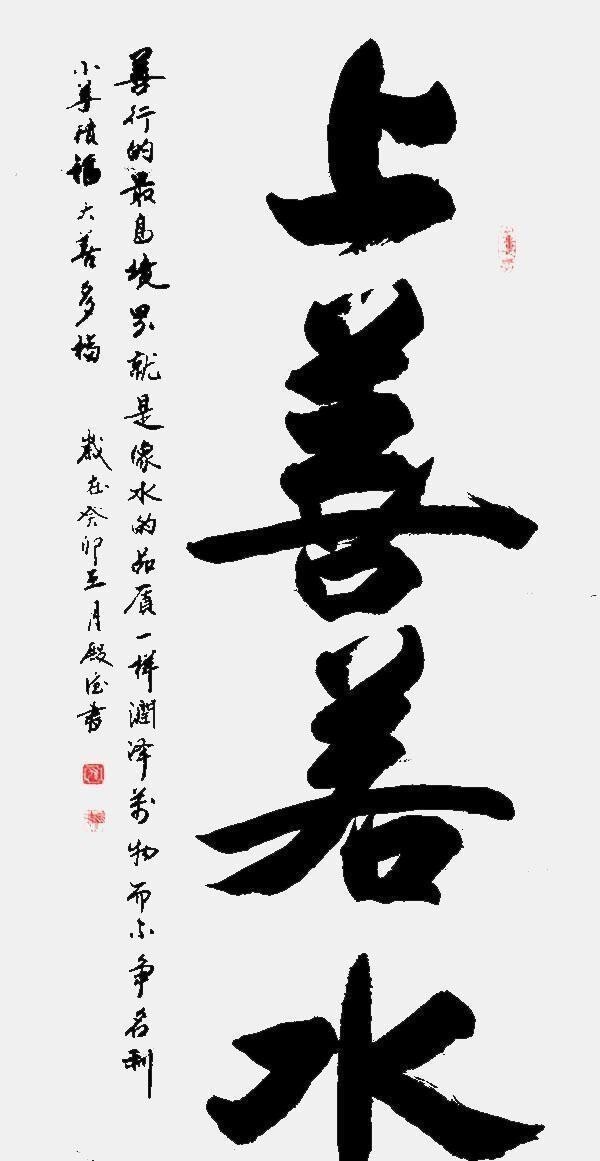 上善若水
善行的最高境界就是像水的品质一样潤泽万物而不争名利
小善積福大善多福
歲在癸卯五月殿宝書